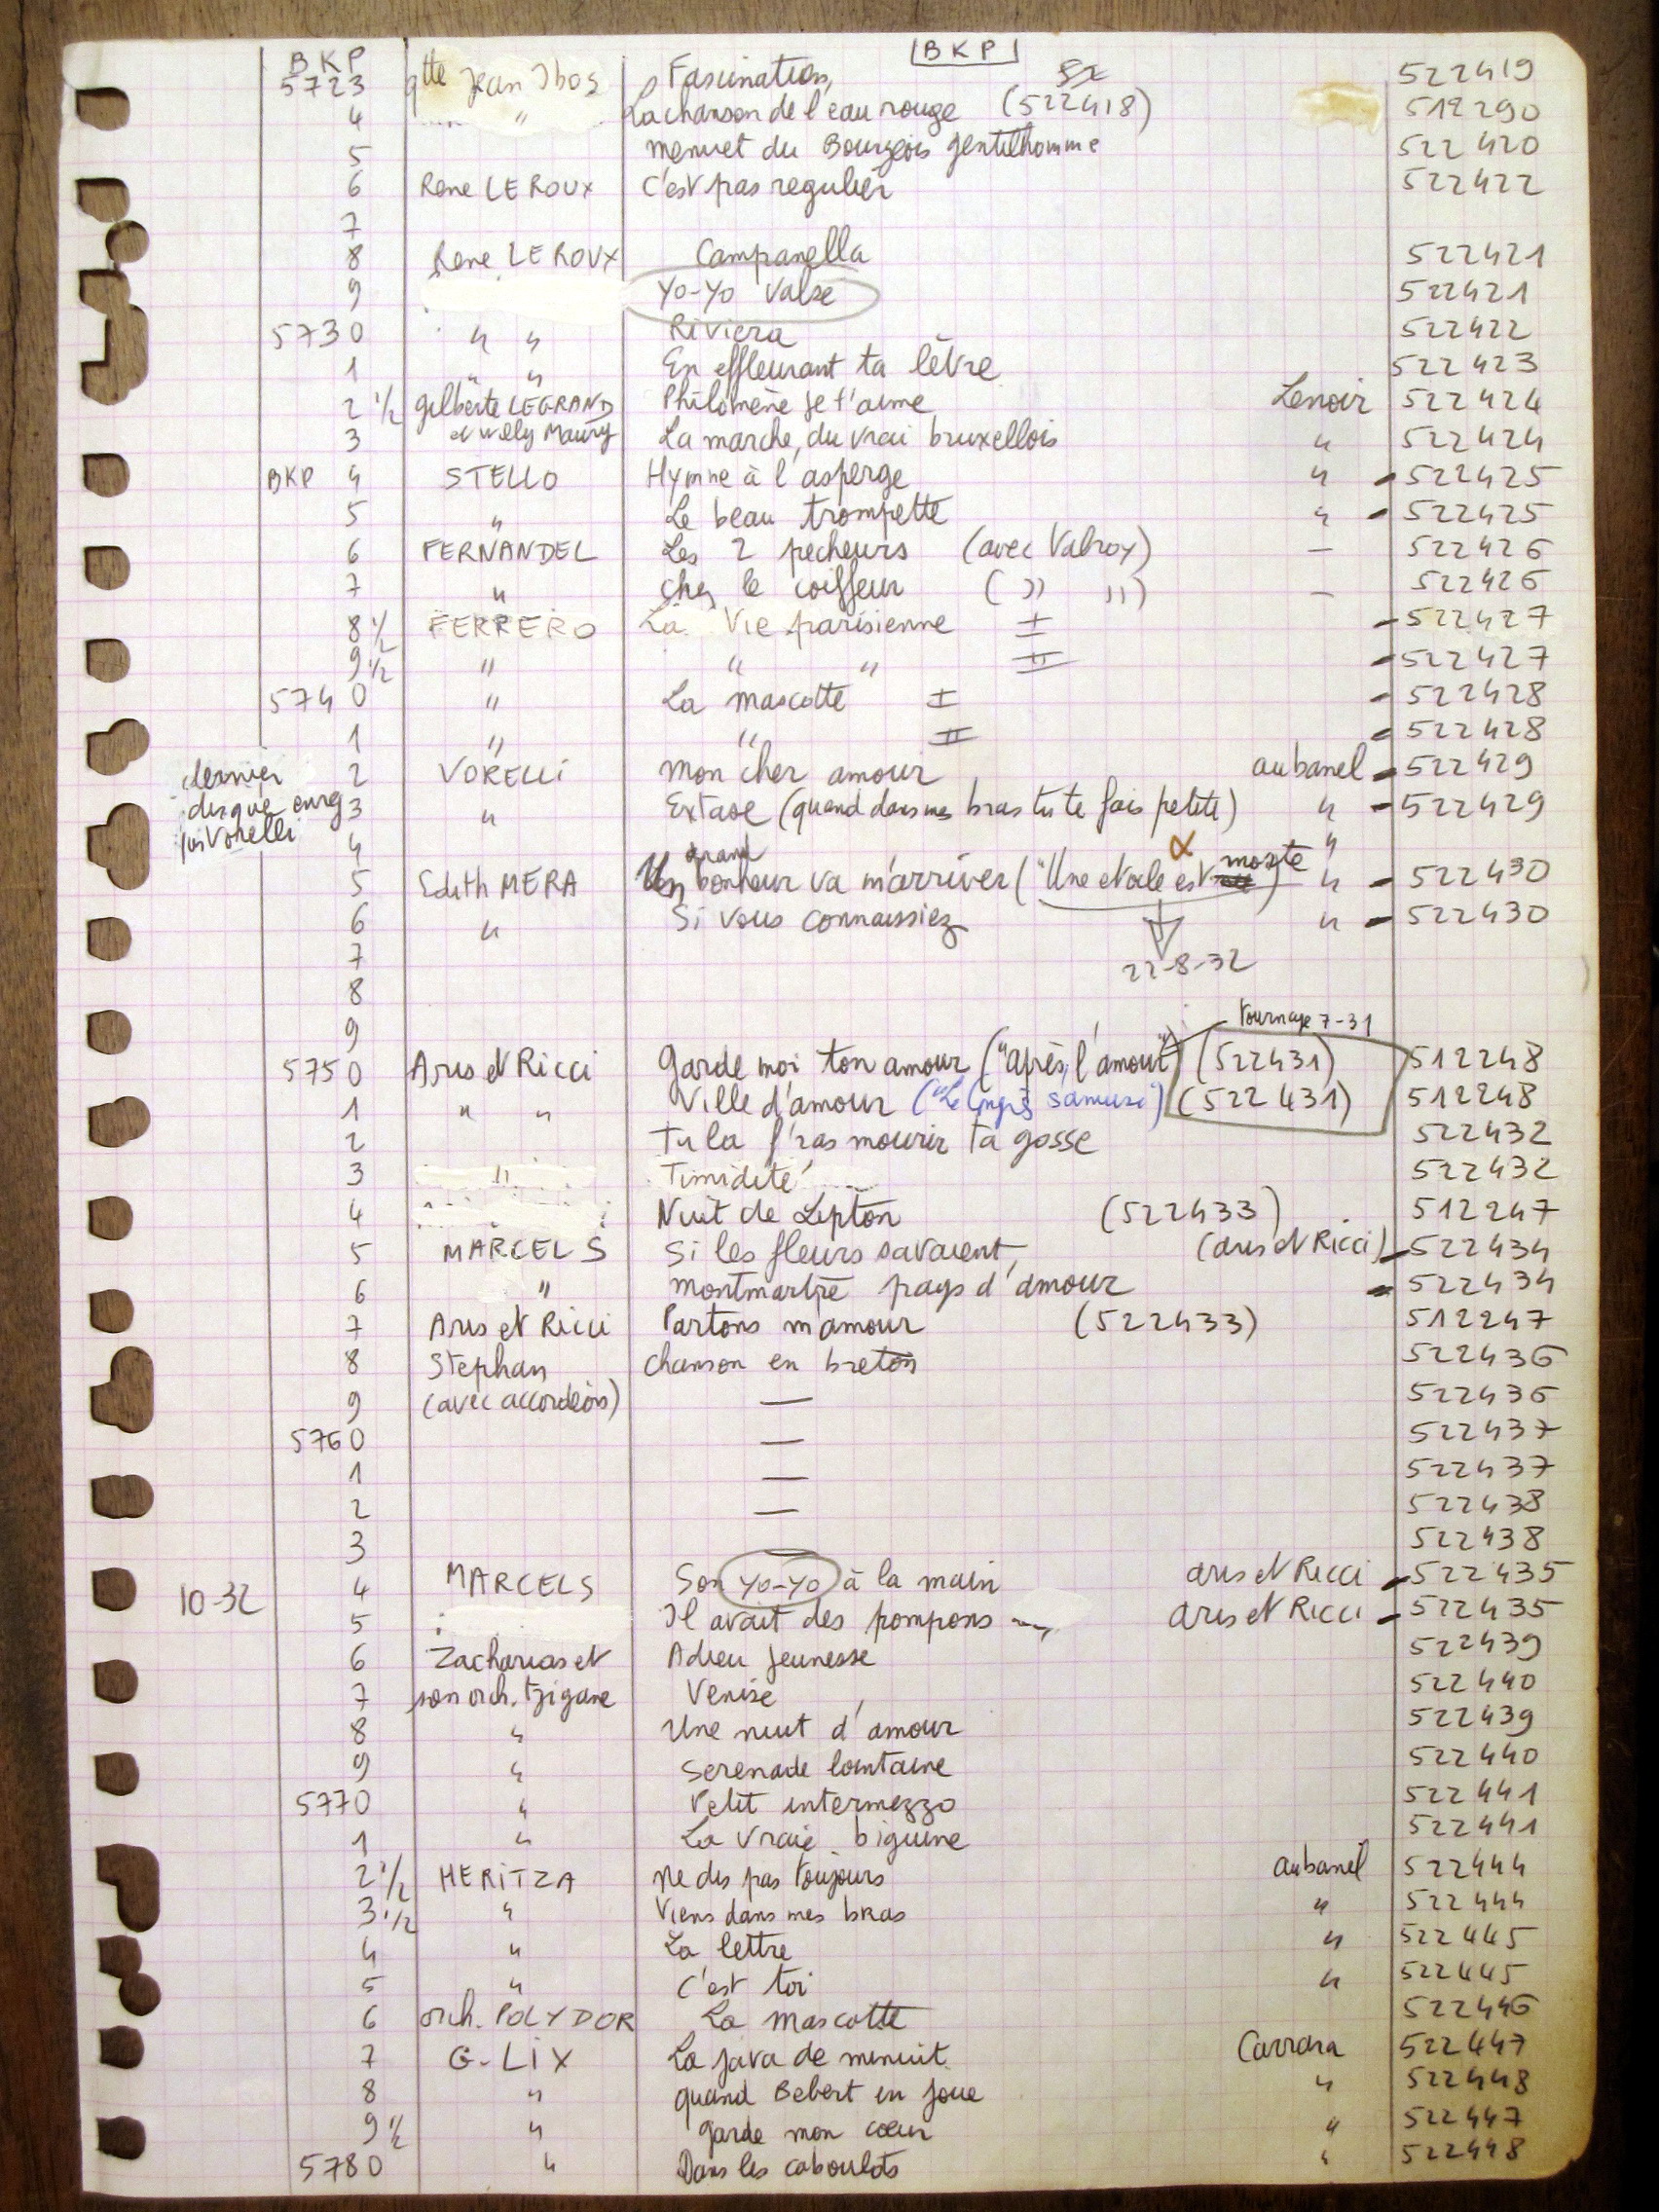 BKP
BKP
5723 qtte Jean Ibos Fascination 522419
4 " La chanson de l'eau rouge (522418) 512290
5 menuet du Bourgeois gentilhomme 522420
6 Rene LEROUX C'est pas regulier 522422
7
8 Rene LEROUX Campanella 522421
9 Yo-Yo valse 522421
5730 " " Riviera 522422
1 " " En effleurant ta lèvre 522423
2 1/2 Gilberte LEGRAND Philomène je t'aime Lenoir 522424
3 et Willy Maury La marche du vrai bruxellois " 522424
BKP 4 STELLO Hymne à l'asperge " 522425
5 " Le beau trompette " 522425
6 FERNANDEL Les 2 pecheurs (avec Valroy) — 522426
7 " chez le coiffeur ( " " ) — 522426
8 1/2 FERRERO La Vie parisienne I 522427
9 1/2 " " " II 522427
5740 " La mascotte I 522428
1 " " II 522428
dernier 2 VORELLI mon cher amour aubanel 522429
disque enreg 3 " Extase (quand dans mes bras tu te fais petite) " 522429
par Vorelli 4 "
5 Edith MERA Un grand bonheur va m'arriver ("Une etoile est morte) " 522430
6 " Si vous connaissiez " 522430
7 22-8-32
8
9 tournage 7-31
5750 Aris et Ricci Garde moi ton amour ("après l'amour") (522431) 512248
1 " " Ville d'amour ("Le Congrès s'amuse") (522431) 512248
2 Tu la f'ras mourir ta gosse 522432
3 " Timidité 522432
4 Nuit de Lepton (522433) 512247
5 MARCEL S Si les fleurs savaient (aris et Ricci) 522434
6 " Montmartre pays d'amour 522434
7 Aris et Ricci Partons m'amour (522433) 512247
8 Stephan chanson en breton 522436
9 (avec accordéon) — 522436
5760 — 522437
1 — 522437
2 — 522438
3 — 522438
10-32 4 MARCELS Son Yo-Yo à la main aris et Ricci 522435
5 Il avait des pompons aris et Ricci 522435
6 Zacharias et Adieu jeunesse 522439
7 son orch. tzigane Venise 522440
8 " Une nuit d'amour 522439
9 " Serenade lointaine 522440
5770 " Petit intermezzo 522441
1 " La vraie biguine 522441
2 1/2 HERITZA Ne dis pas toujours aubanel 522444
3 1/2 " Viens dans mes bras " 522444
4 " La lettre " 522445
5 " C'est toi " 522445
6 orch. POLYDOR La mascotte 522446
7 G-LIX La java de minuit Carrara 522447
8 " quand Bebert en joue " 522448
9 1/2 " garde mon cœur " 522447
5780 " Dans les caboulots " 522448